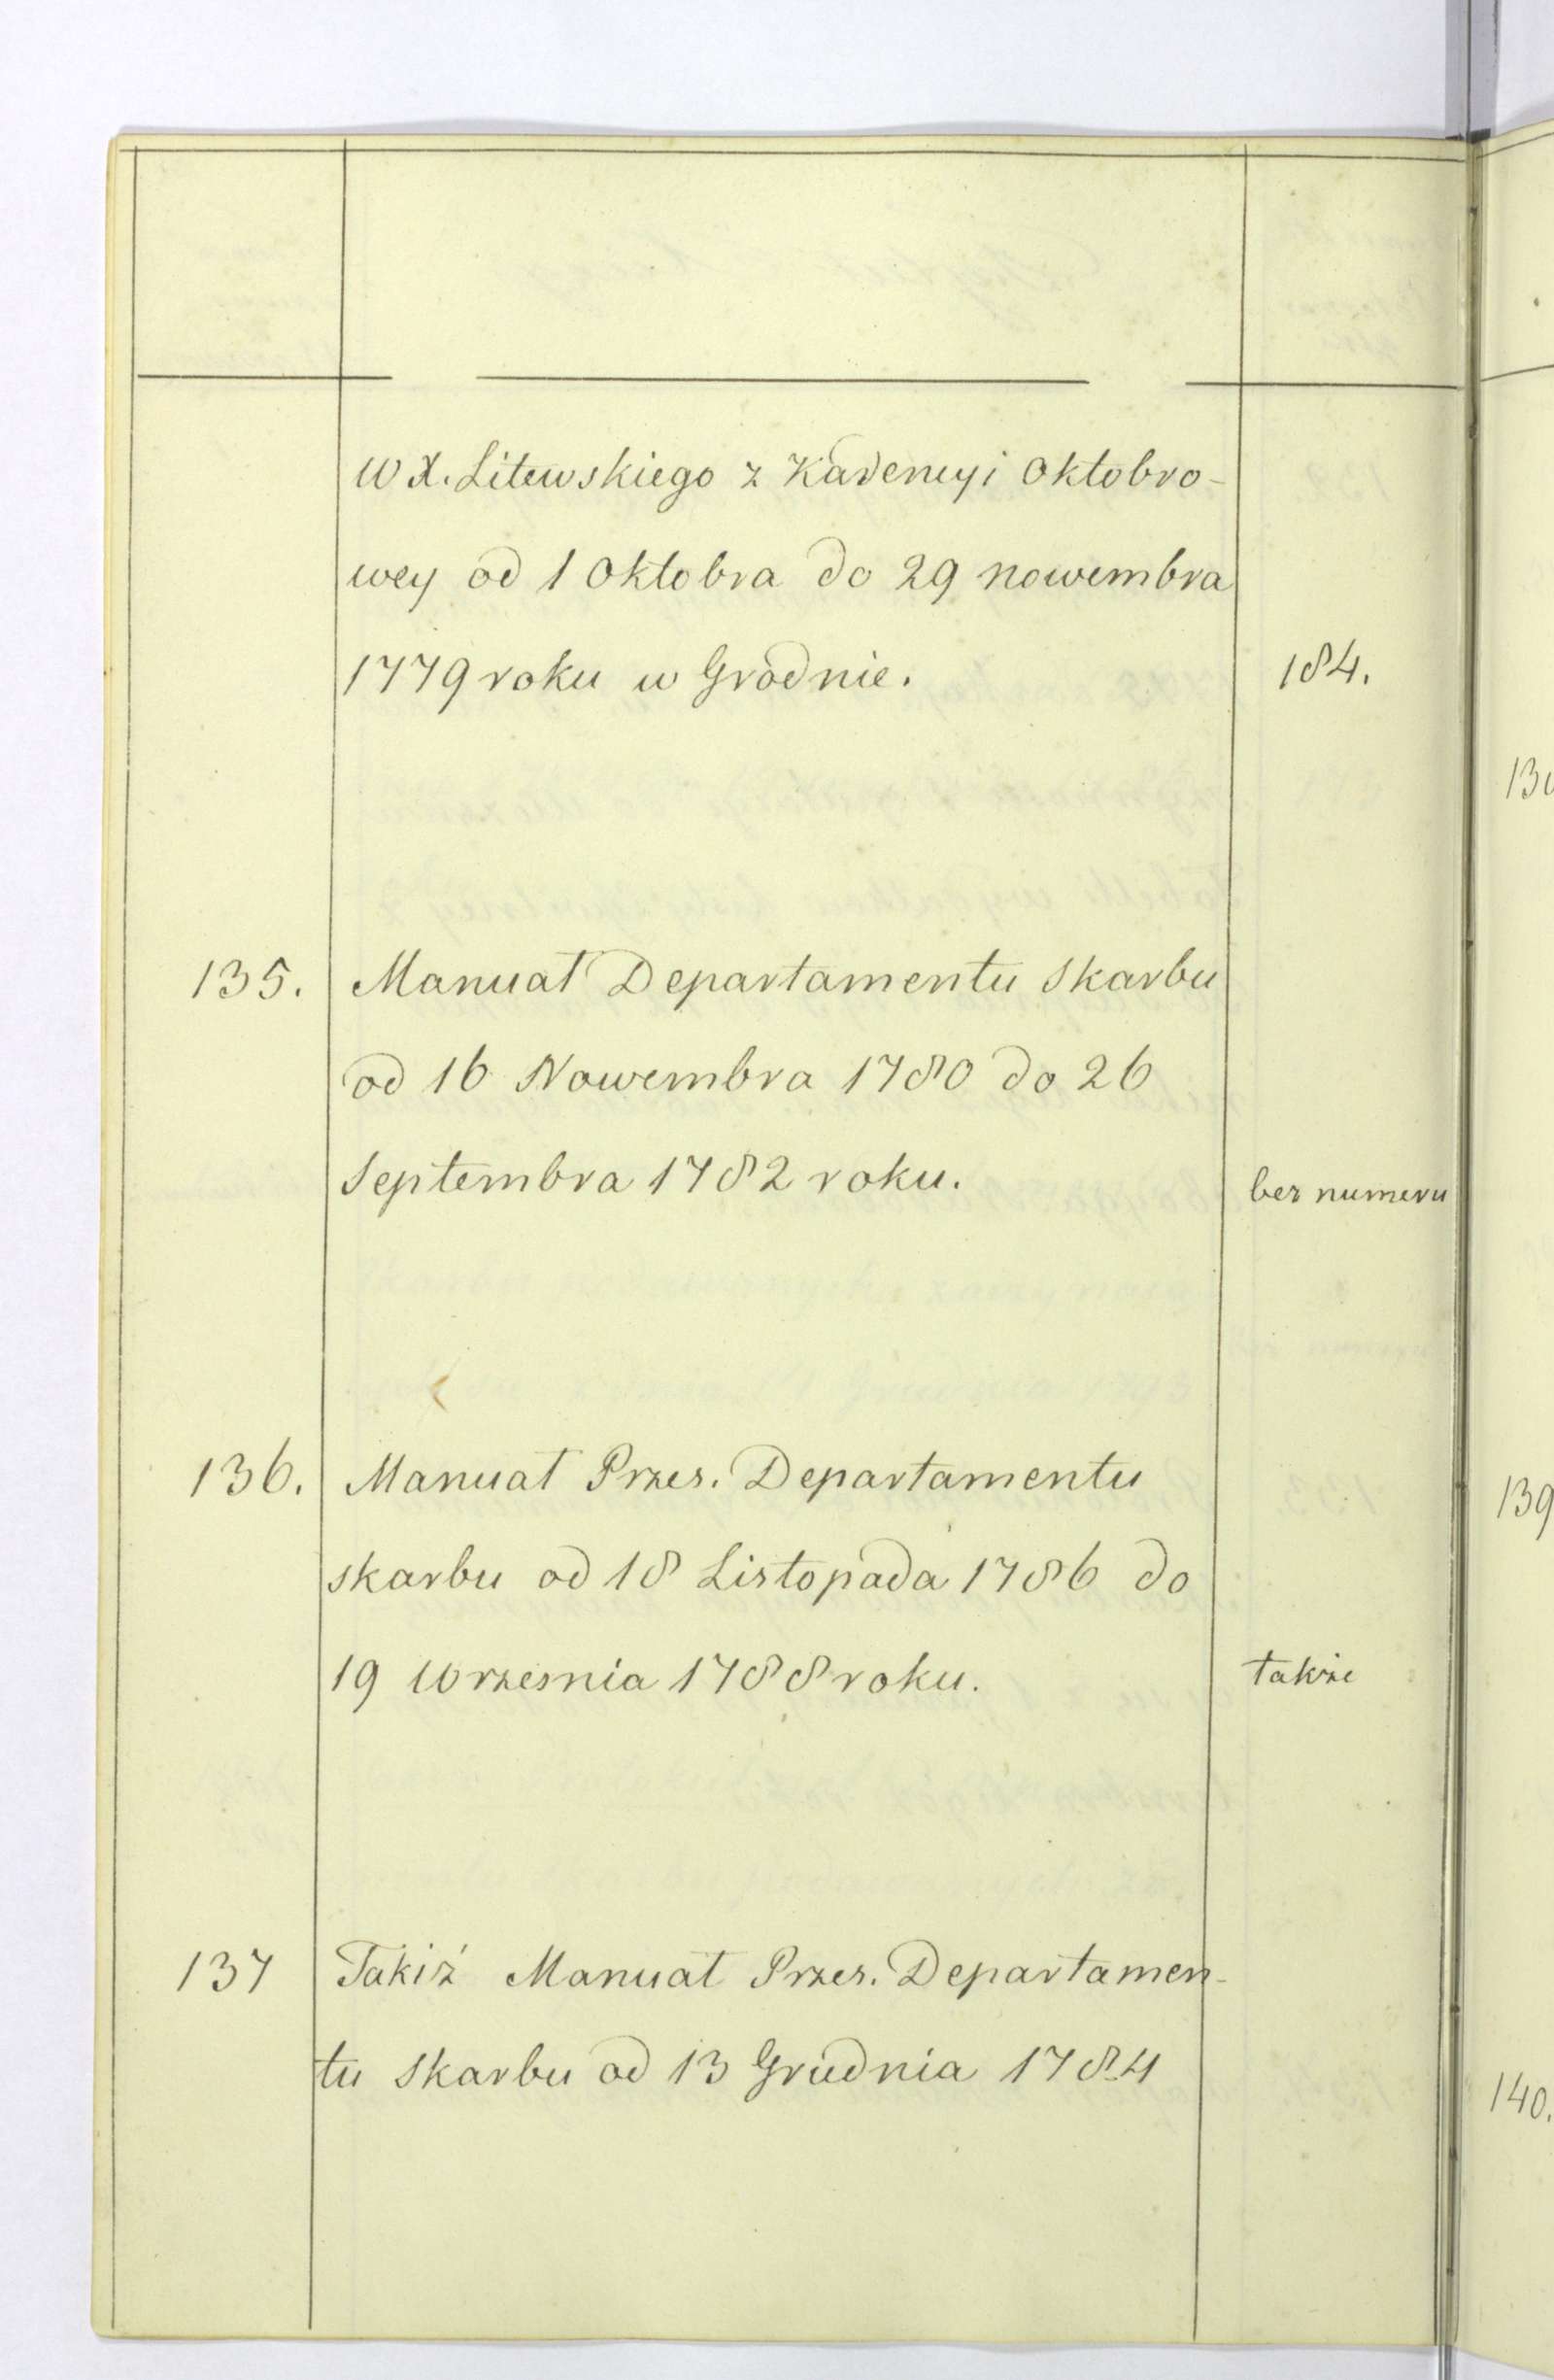 W X. Litewskiego z Kadencyi Oktobro-
wey od 1 Oktobra do 29 nowembra
1779 roku w Grodnie. 184.
135. Manuał Departamentu Skarbu
od 16 Nowembra 1780 do 26
Septembra 1782 roku. bez numeru
136. Manuał Przes. Departamentu
skarbu od 18 Listopada 1786 do
19 Wrzesnia 1788 roku. także
137 Takiż Manuał Przes. Departamen-
tu Skarbu od 13 Grudnia 1784
139
140.